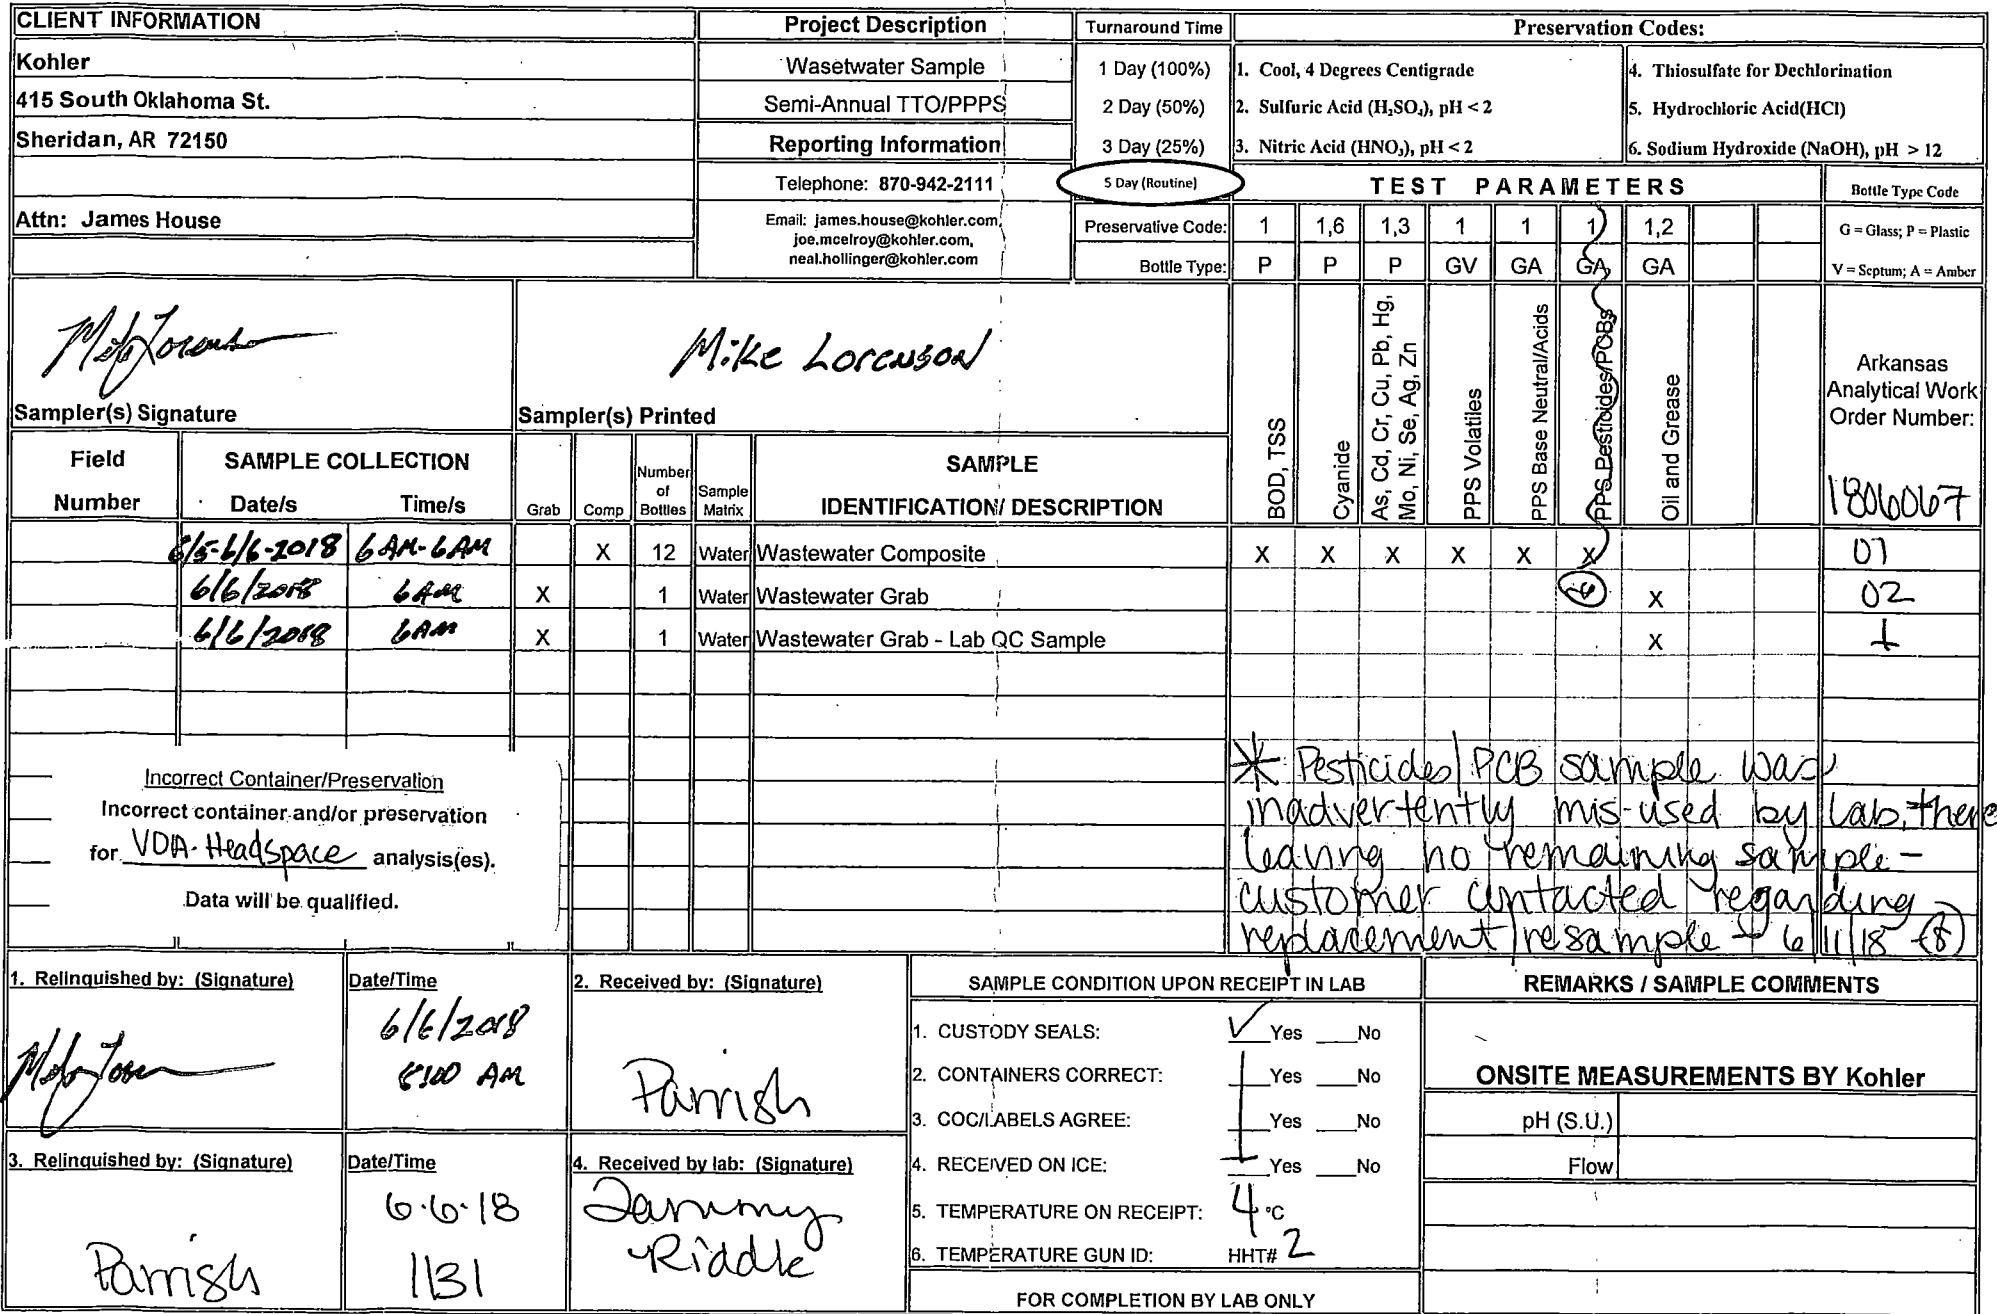 CLIENT INFORMATION
Kohler
415 South Oklahoma St.
Sheridan, AR 72150
Attn: James House
Project Description
Wasetwater Sample
Semi-Annual TTO/PPPS
Reporting Information
Telephone: 870-942-2111
Email: james.house@kohler.com,
joe.mcelroy@kohler.com,
neal.hollinger@kohler.com
Turnaround Time
1 Day (100%)
2 Day (50%)
3 Day (25%)
5 Day (Routine)
Preservation Codes:
1. Cool, 4 Degrees Centigrade
2. Sulfuric Acid (H₂SO₄), pH < 2
3. Nitric Acid (HNO₃), pH < 2
4. Thiosulfate for Dechlorination
5. Hydrochloric Acid(HCl)
6. Sodium Hydroxide (NaOH), pH > 12
TEST PARAMETERS
Bottle Type Code
Preservative Code: 1 1,6 1,3 1 1 1 1,2
G = Glass; P = Plastic
Bottle Type: P P P GV GA GA GA
V = Septum; A = Amber
Mike Lorenson
Sampler(s) Signature
Sampler(s) Printed
BOD, TSS
Cyanide
As, Cd, Cr, Cu, Pb, Hg,
Mo, Ni, Se, Ag, Zn
PPS Volatiles
PPS Base Neutral/Acids
PPS Pesticides/PCBs
Oil and Grease
Arkansas
Analytical Work
Order Number:
1806067
Field
Number
SAMPLE COLLECTION
Date/s Time/s
Grab
Comp
Number
of
Bottles
Sample
Matrix
SAMPLE
IDENTIFICATION/ DESCRIPTION
6/5-6/6-2018 6AM-6AM X 12 Water Wastewater Composite X X X X X X 01
6/6/2018 6AM X 1 Water Wastewater Grab X 02
6/6/2018 6AM X 1 Water Wastewater Grab - Lab QC Sample X
Incorrect Container/Preservation
Incorrect container and/or preservation
for VOA-Headspace analysis(es).
Data will be qualified.
* Pesticides/PCB sample was
inadvertently mis-used by lab, there
leaving no remaining sample -
customer contacted regarding
replacement/resample - 6/11/18
1. Relinquished by: (Signature)
Date/Time
6/6/2018
8:00 AM
2. Received by: (Signature)
Parrish
3. Relinquished by: (Signature)
Parrish
Date/Time
6-6-18
1131
4. Received by lab: (Signature)
Tammy
Riddle
SAMPLE CONDITION UPON RECEIPT IN LAB
1. CUSTODY SEALS: ✓ Yes ___No
2. CONTAINERS CORRECT: ___Yes ___No
3. COC/LABELS AGREE: ___Yes ___No
4. RECEIVED ON ICE: ___Yes ___No
5. TEMPERATURE ON RECEIPT: 4 °C
6. TEMPERATURE GUN ID: HHT# 2
FOR COMPLETION BY LAB ONLY
REMARKS / SAMPLE COMMENTS
ONSITE MEASUREMENTS BY Kohler
pH (S.U.)
Flow